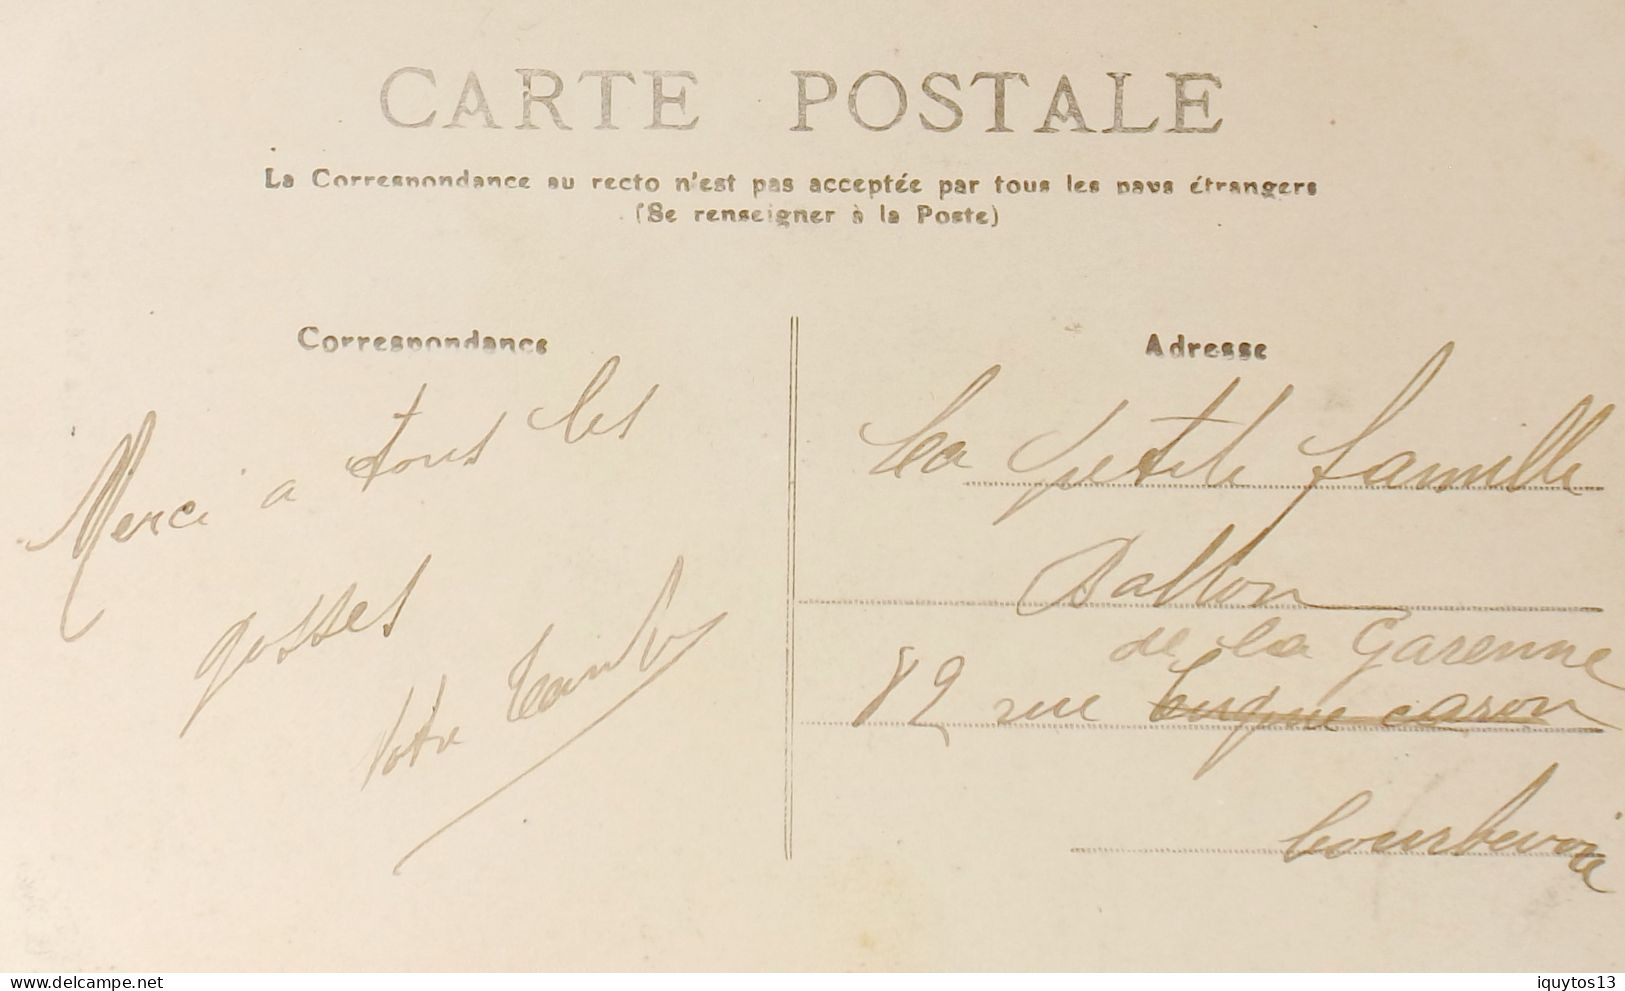 CARTE POSTALE
La Correspondance au recto n'est pas acceptée par tous les pays étrangers
(Se renseigner à la Poste)
Correspondance
Merci a tous les
gosses
Votre
Adresse
La petite famille
de la Garenne
82 rue Eugène caron
Courbevoie
delcampe.net
iquytos13